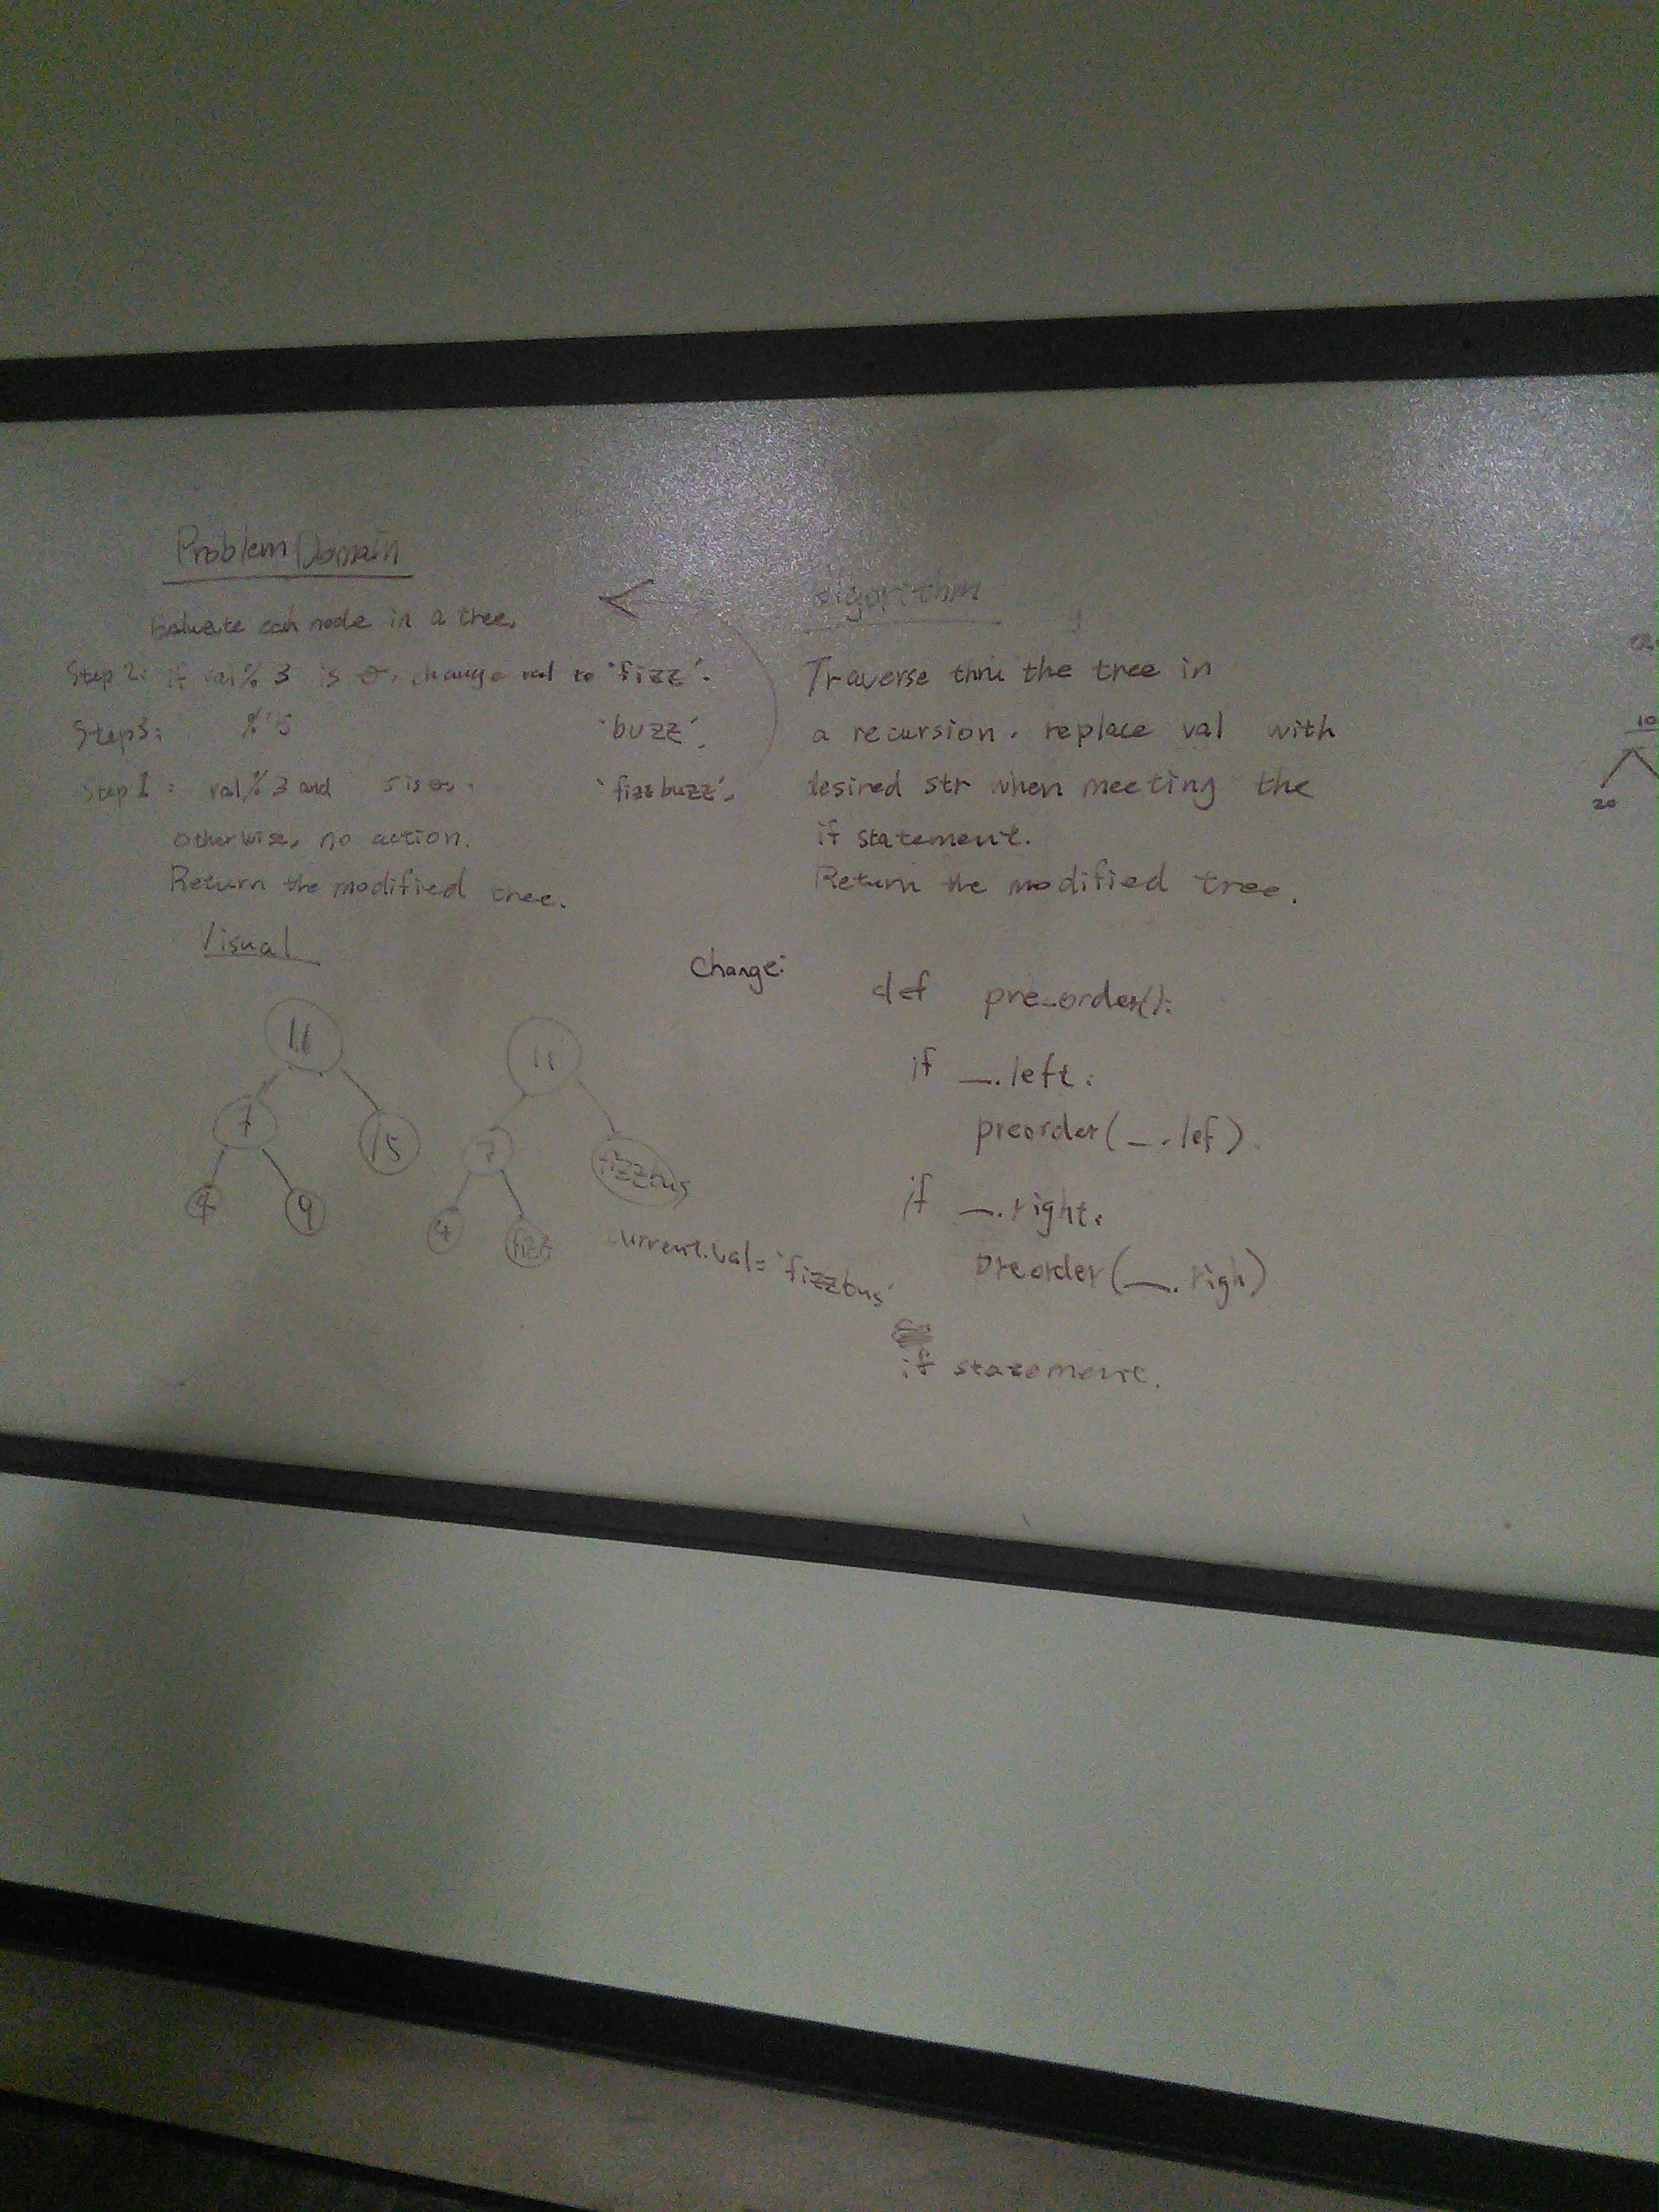 Problem Domain
Evaluate each node in a tree.
Step 2: if val % 3 is 0, change val to 'fizz'.
Step3: % 5 'buzz'.
Step 1: val % 3 and 5 is 0, 'fizzbuzz'.
otherwise, no action.
Return the modified tree.
Visual
11
7 15
4 9
11
7 fizzbus
4 fizz
current.val = 'fizzbus'
Algorithm
Traverse thru the tree in
a recursion. replace val with
desired str when meeting the
if statement.
Return the modified tree.
Change:
def pre_order():
if __.left:
preorder(__.lef)
if __.right:
preorder(__.righ)
if statement.
10
20